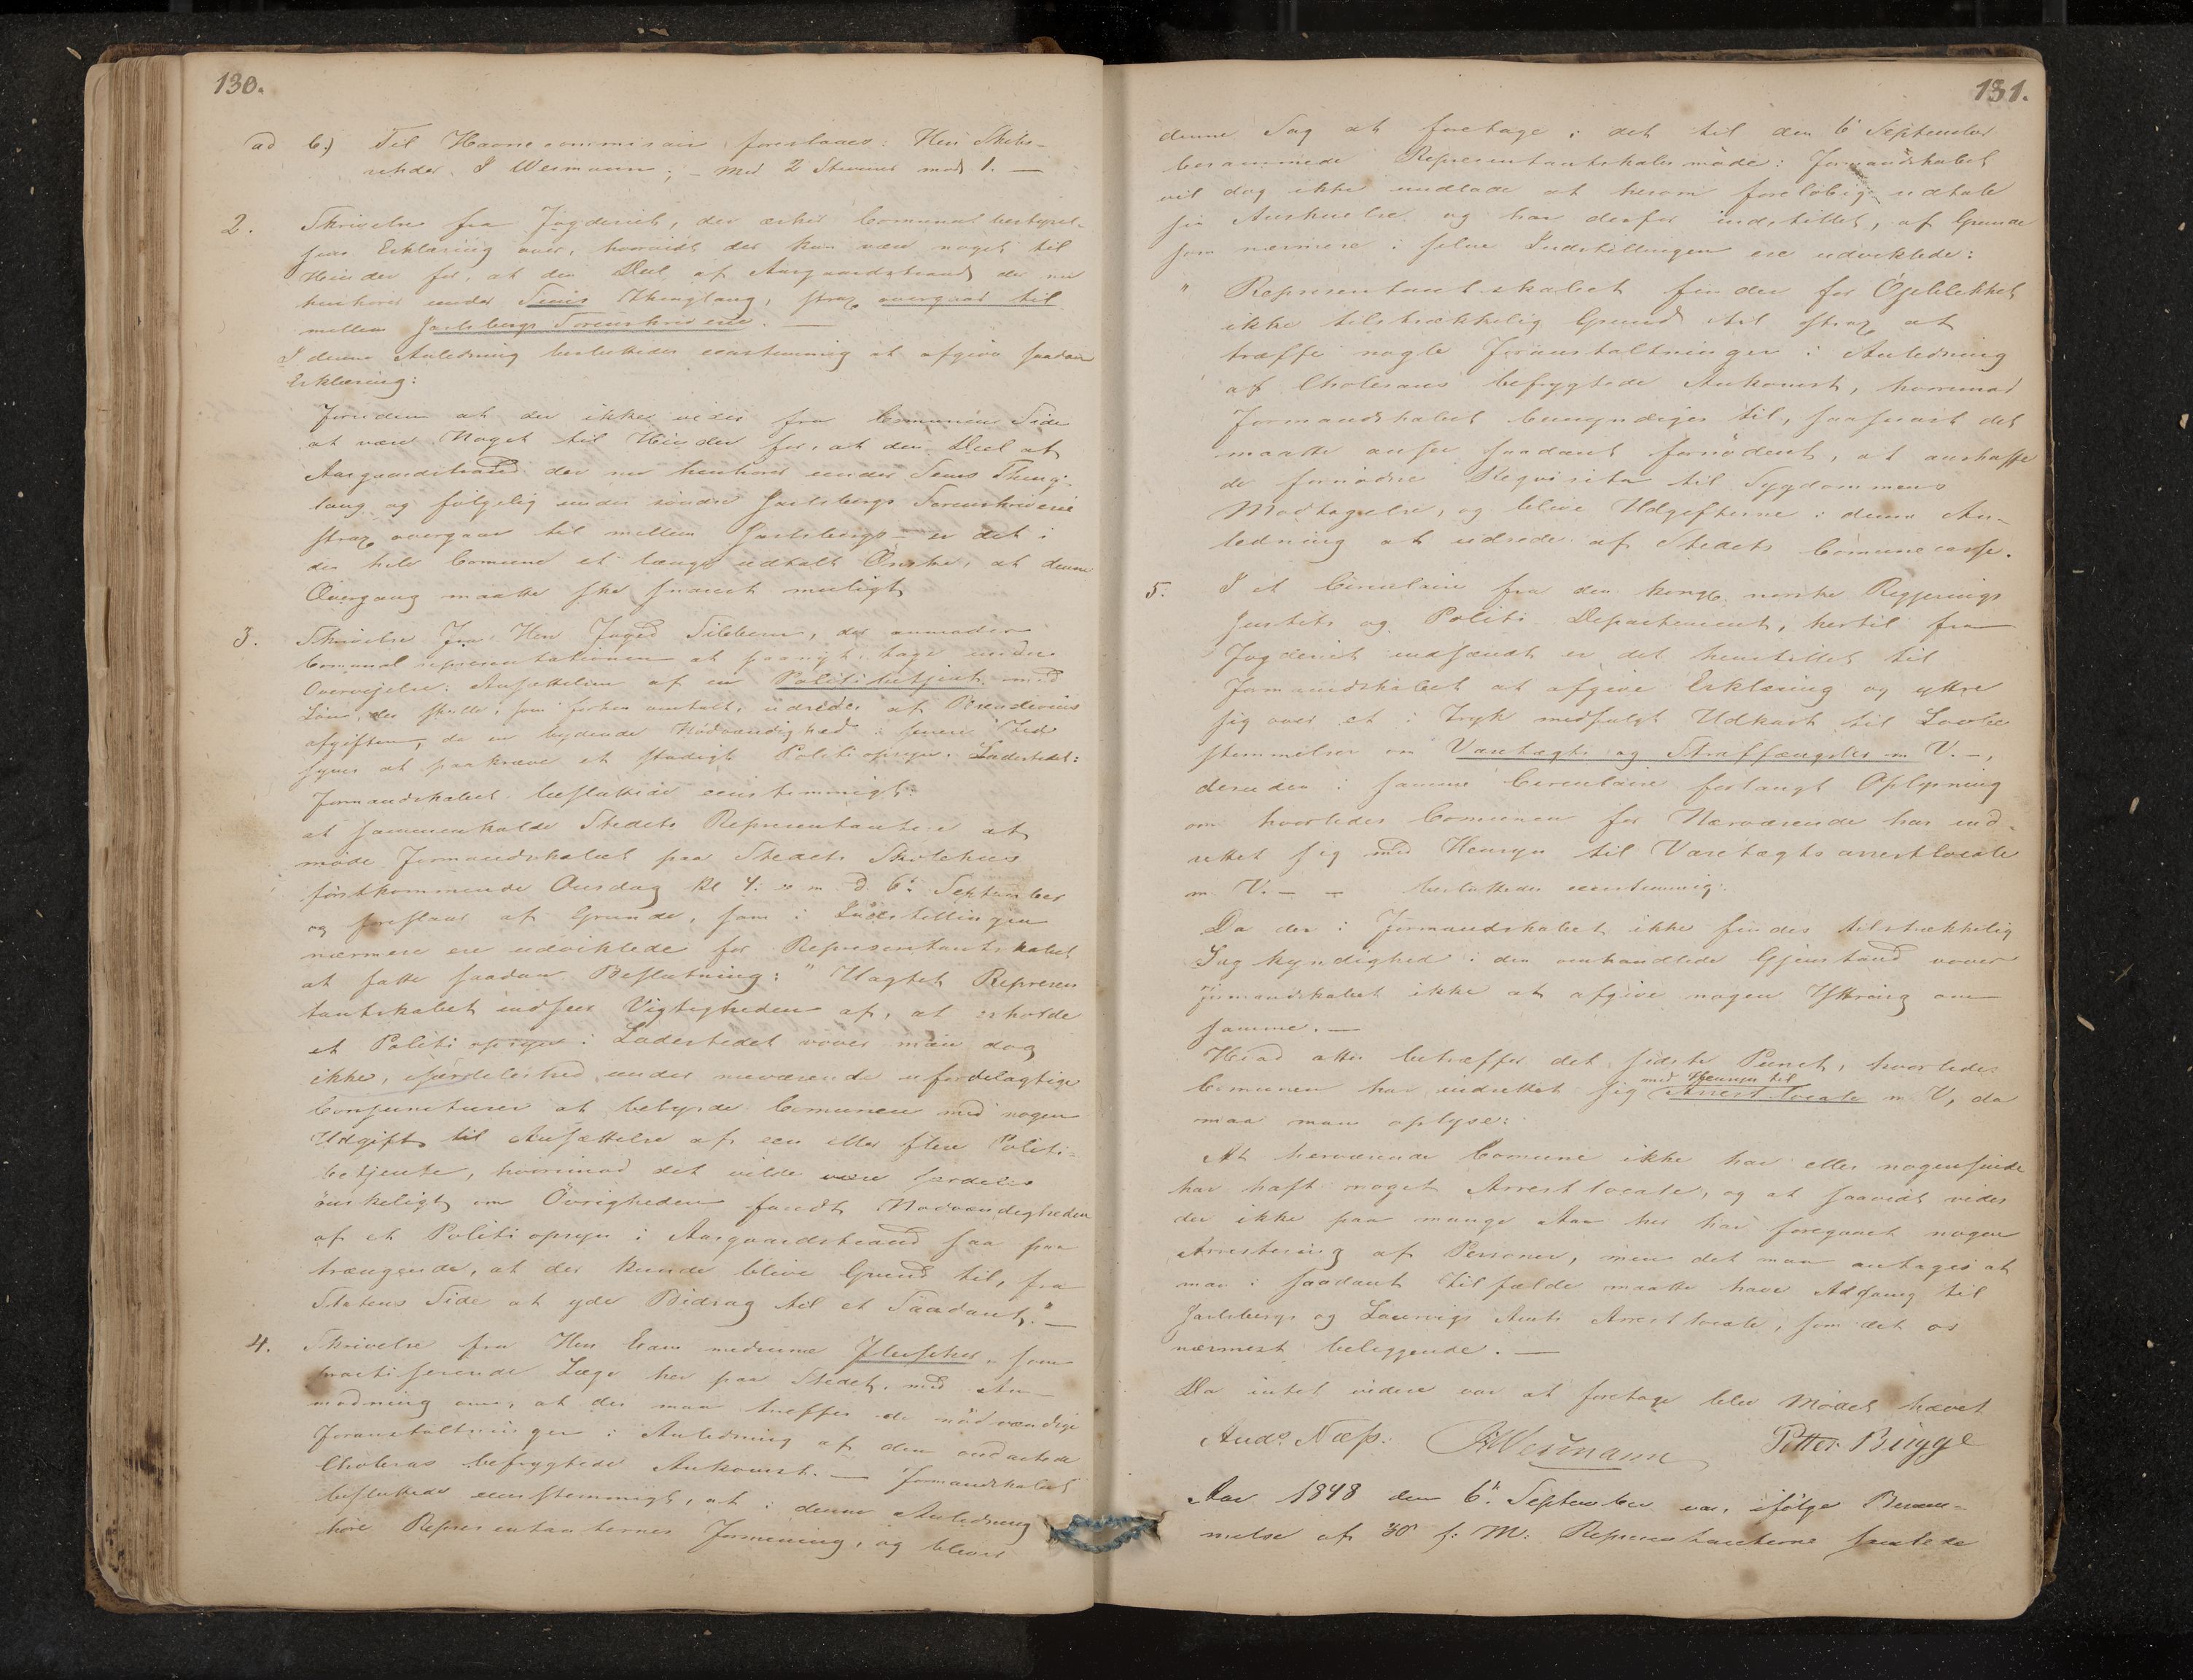 130.
ad 6.) Til Havnecommisair foreslaaes: Herr Skibs-
rheder J Wesmann; - med 2 Stemmer mod 1. —
2. Skrivelse fra Fogderiet, der æsker Communalbestyrel-
sens Erklæring over, hvorvidt der kan være noget til
Hinder for, at den Deel af Aasgaardstrand der nu
henhører under Sems Thinglaug, strax overgaar til
mellem Jarlsbergs Sorenskriverie. —
I denne Anledning besluttedes eenstemmig at afgive saadan
Erklæring:
Foruden at der ikke vides fra Communens Side
at være Noget til Hinder for, at den Deel af
Aasgaardstrand der nu henhører under Sems Thing-
laug og følgelig under søndre Jarlsbergs Sorenskriverie
strax overgaar til mellem Jarlsbergs - er det i
den hele Comune et længe udtalt Ønske, at denne
Overgang maatte skee snarest muligt
3. Skrivelse fra Herr Foged Sibbern, der anmoder
Comunal representationen at paanyt tage under
Overvejelse: Ansættelsen af en Politibetjent med
Løn, der skulde, som forhen omtalt, udredes af Brændeviins
afgiften, da en bydende Nødvændighed i senere Tid
synes at paakræve et stadigt Politiopsyn i Ladestedet:
Formandskabet besluttede eenstemmigt:
at sammenkalde Stedets Representantere at
møde Formandskabet paa Stedets Skolehuus
førstkommende Onsdag Kl 4: e m d. 6te September
og foreslaae af Grunde, som i Indstillingen
nærmere ere udviklede for Representantskabet
at fatte saadan Beslutning: "Uagtet Represen
tantskabet indseer Vigtigheden af, at erholde
et Politi opsyn i Ladestedet vover man dog
ikke, isærdeleshed under nuværende ufordelagtige
Conjuncturer at bebyrde Comunen med nogen
Udgift til Ansættelse af een eller flere Politi-
betjente, hvorimod det vilde være særdeles
ønskeligt om Øvrigheden fandt Nødvendigheden
af et Politi opsyn i Aasgaardstrand saa paa
trængende, at der kunde blive Grund til, fra
Statens Side at yde Bidrag til et Saadant." —
4. Skrivelse fra Herr Exam medicinæ som
practiserende Læge her paa Stedet, med An-
modning om, at der maa træffes de nødvendige
Foranstaltninger i Anledning af den ondartede
Choleras befrygtede Ankomst. — Formandskabet
besluttede eenstemmigt, at i denne Anledning
høre Representanternes Formening, og bliver
131.
denne Sag at foretage i det til den 6 September
berammede Representantskabsmøde: Formandskabet
vil dog ikke undlade at herom foreløbig udtale
sin Anskuelse og har derfor indstillet, af Grunde
som nærmere i selve Indstillingen ere udviklede:
" Representantskabet finder for Øjeblikket
ikke tilstrækkelig Grund til strax at
træffe nogle Foranstaltninger i Anledning
af Choleraens befrygtede Ankomst, hvorimod
Formandskabet bemyndiges til, saasnart det
maatte ansee saadant fornødent, at anskaffe
de fornødne Reqvisita til Sygdommens
Modtagelse, og blive Udgifterne i denne An-
ledning at udrede af Stedets Comunecasse.
5. I et Circulaire fra den kongl: norske Regjerings
Justits og Politi Departement, hertil fra
Fogderiet indsendt er det henstillet til
Formandskabet at afgive Erklæring og yttre
sig over et i Tryk medfulgt Udkast til Lovbe
stemmelser om Varetægts og Straffængsler m. V. —,
desuden i samme Circulaire forlangt Oplysning
om hvorledes Comunen for Nærværende har ind-
rettet sig med Hensyn til Varetægts arrestlocale
m. V. — — besluttedes eenstemmig:
Da der i Formandskabet ikke findes tilstrækkelig
Sag kyndighed i den omhandlede Gjenstand vover
Formandskabet ikke at afgive nogen Yttring om
samme. —
Hvad atter betræffer det sidste Punct, hvorledes
Comunen har indrettet sig med Hensyn til Arrest locale m V, da
maa man oplyse:
At herværende Comune ikke har eller nogensinde
har haft noget Arrest locale, og at saavidt vides
der ikke paa mange Aar her har foregaaet nogen
Arrestering af Personer, men det maa antages at
man i saadant Tilfælde maatte have Adgang til
Jarlsbergs og Laurvigs Amts Arrest locale, som det os
nærmest beliggende. —
Da intet videre var at foretage blev Mødet hævet
Ands Næss. JWesmann Petter Bügge
Aar 1848 den 6te September var, ifølge Beram-
melse af 30 f: M: Representanterne samlede